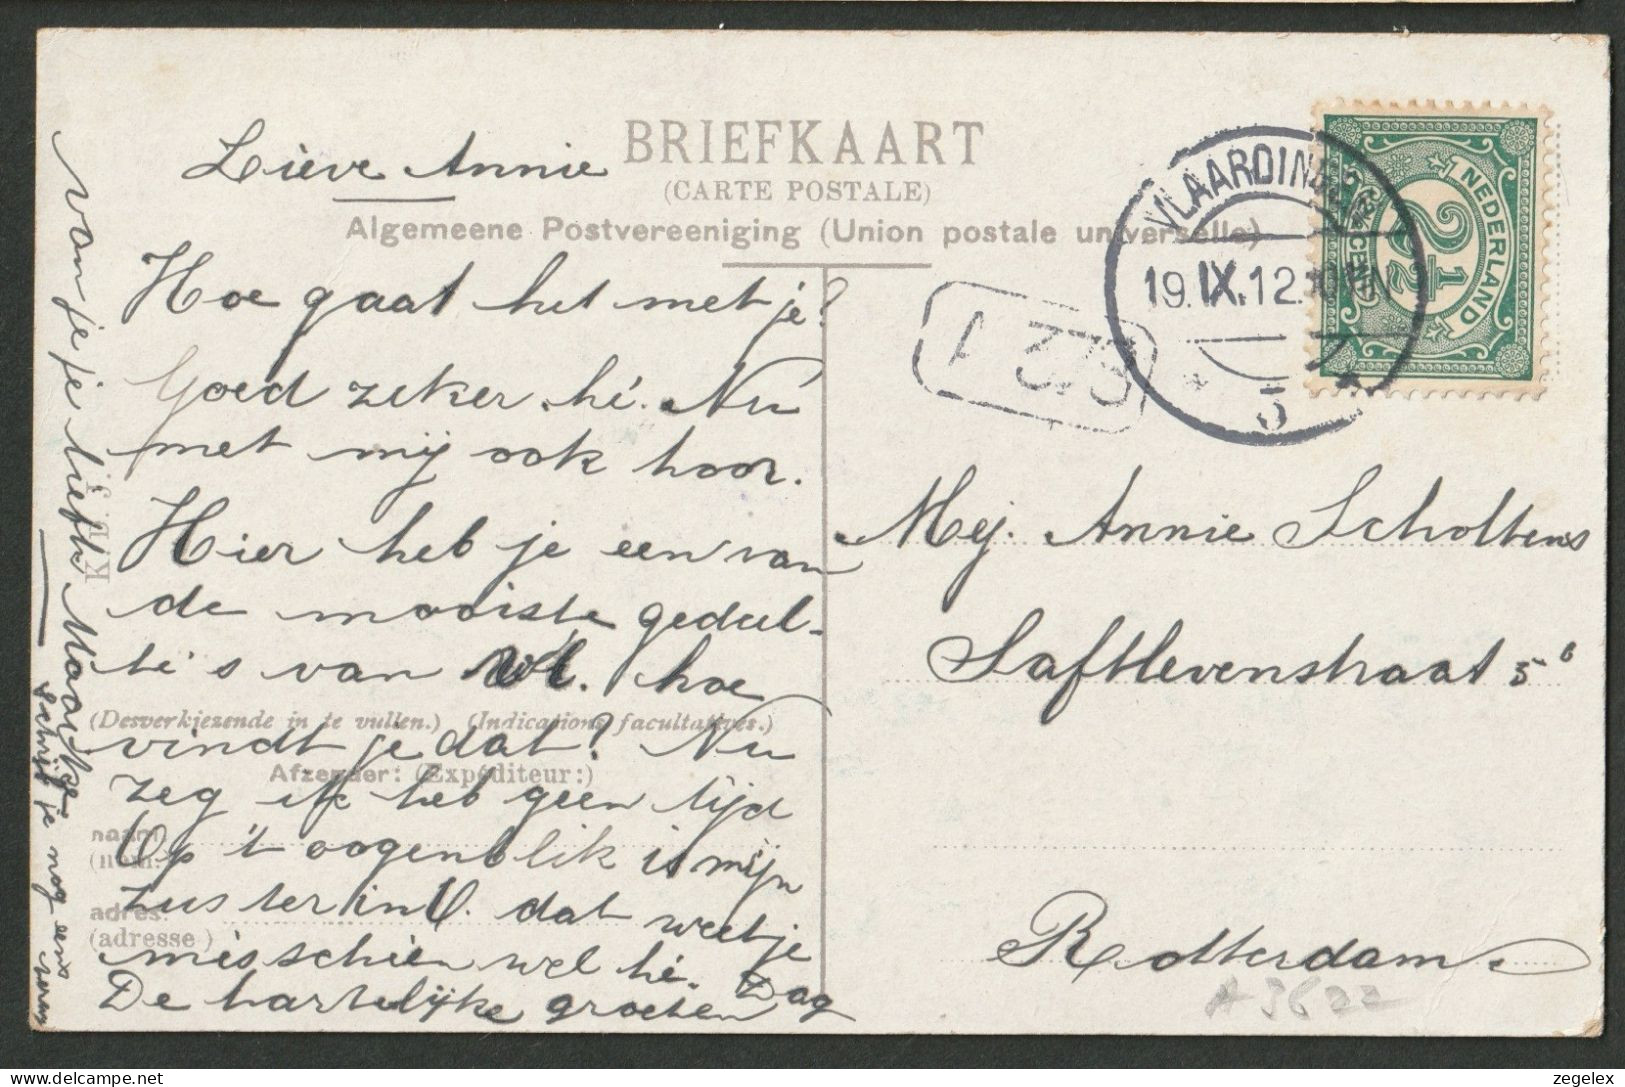 BRIEFKAART
(CARTE POSTALE)
Algemeene Postvereeniging (Union postale universelle)
Lieve Annie
Hoe gaat het met je?
Goed zeker hé. Nu
met mij ook hoor.
Hier heb je een van
de mooiste gedeel-
te's van Vl. hoe
(Desverkiezende in te vullen.) (Indications facultatives.)
vindt je dat? Nu
Afzender: (Expéditeur:)
zeg ik heb geen tijd
naam:
(nom:
Op 't oogenblik is mijn
zuster in V. dat weet je
adres:
(adresse)
misschien wel hé. Dag
De hartelijke groeten
van je je liefh. Maartje
Schrijf je nog eens weer
VLAARDINGEN
19.IX.12.10-11N
5
NEDERLAND
2½ CENT
2½
Mej. Annie Scholtens
Saftlevenstraat 5b
Rotterdam.
A 3622
zegelex